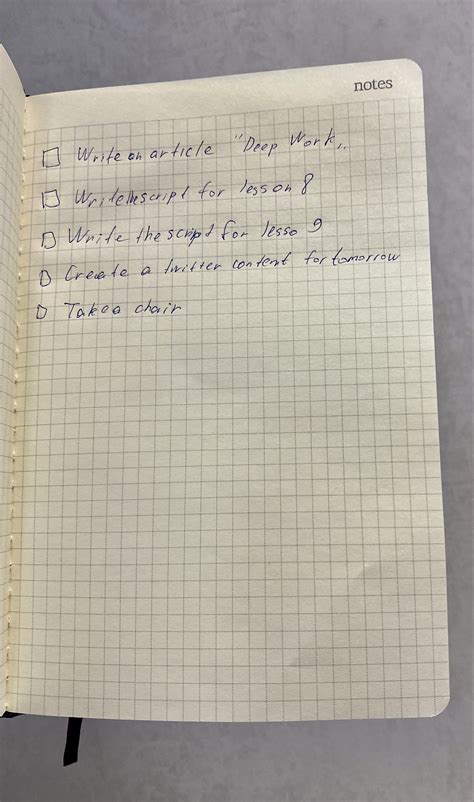 notes
Write an article "Deep Work„
Write the script for lesson 8
Write the script for lesso 9
Create a twitter content for tomorrow
Take a chair